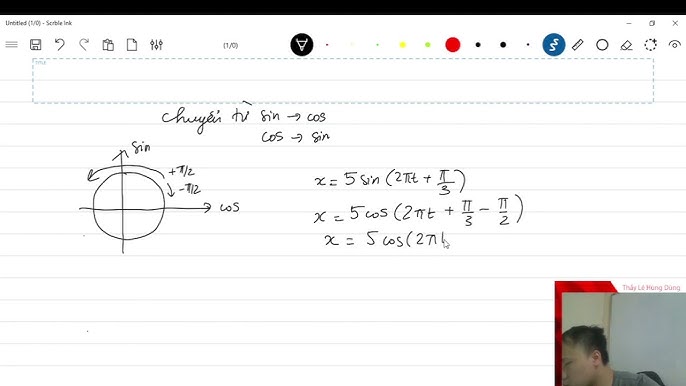 Untitled (1/0) - Scrble Ink
(1/0)
Title
chuyển từ sin → cos
cos → sin
sin
+π/2
-π/2
cos
x = 5 sin(2πt + π/3)
x = 5 cos(2πt + π/3 - π/2)
x = 5 cos(2πt
Thầy Lê Hùng Dũng